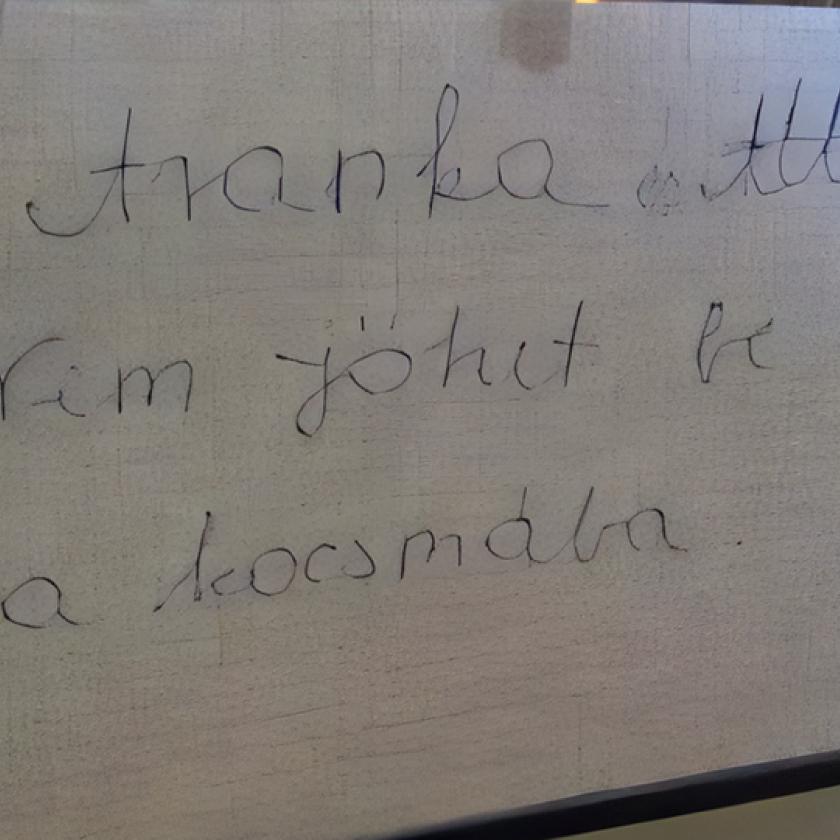 Aranka
nem jöhet be
a kocsmába.